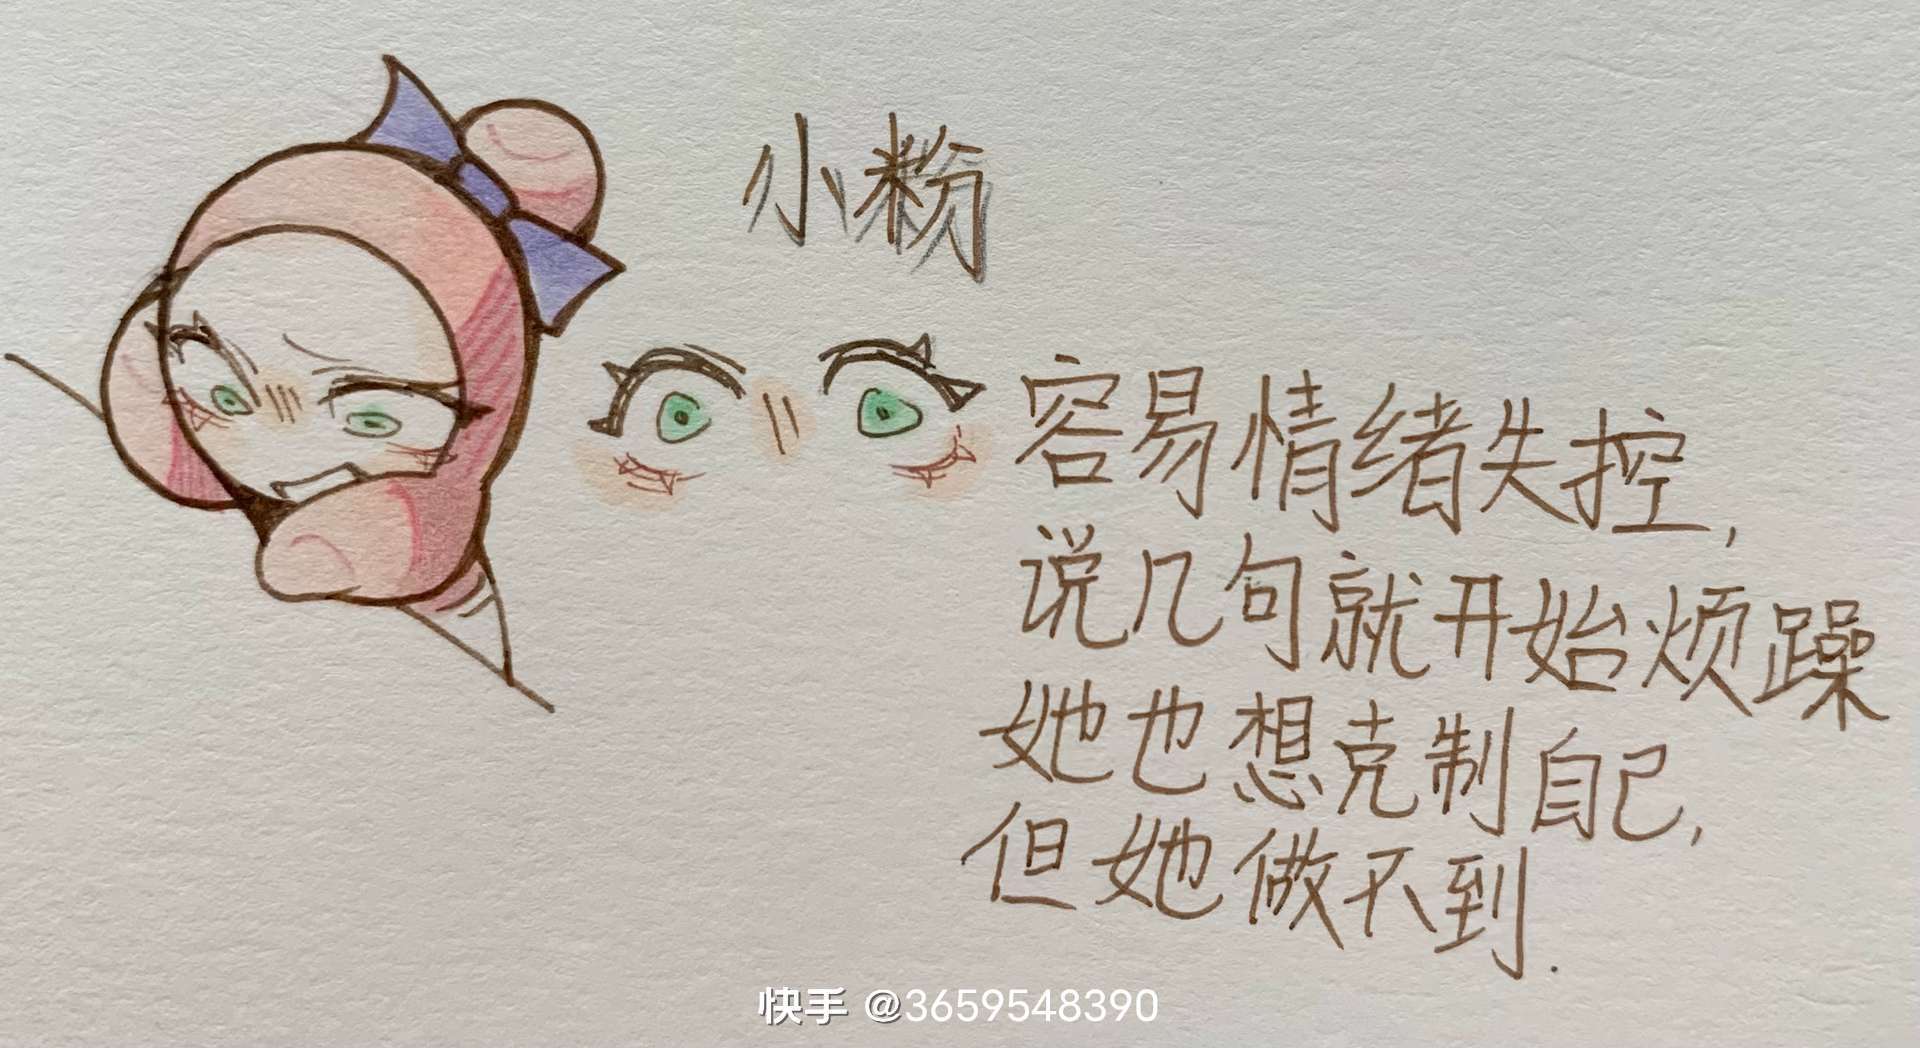 小粉
容易情绪失控,
说几句就开始烦躁
她也想克制自己,
但她做不到.
快手 @3659548390